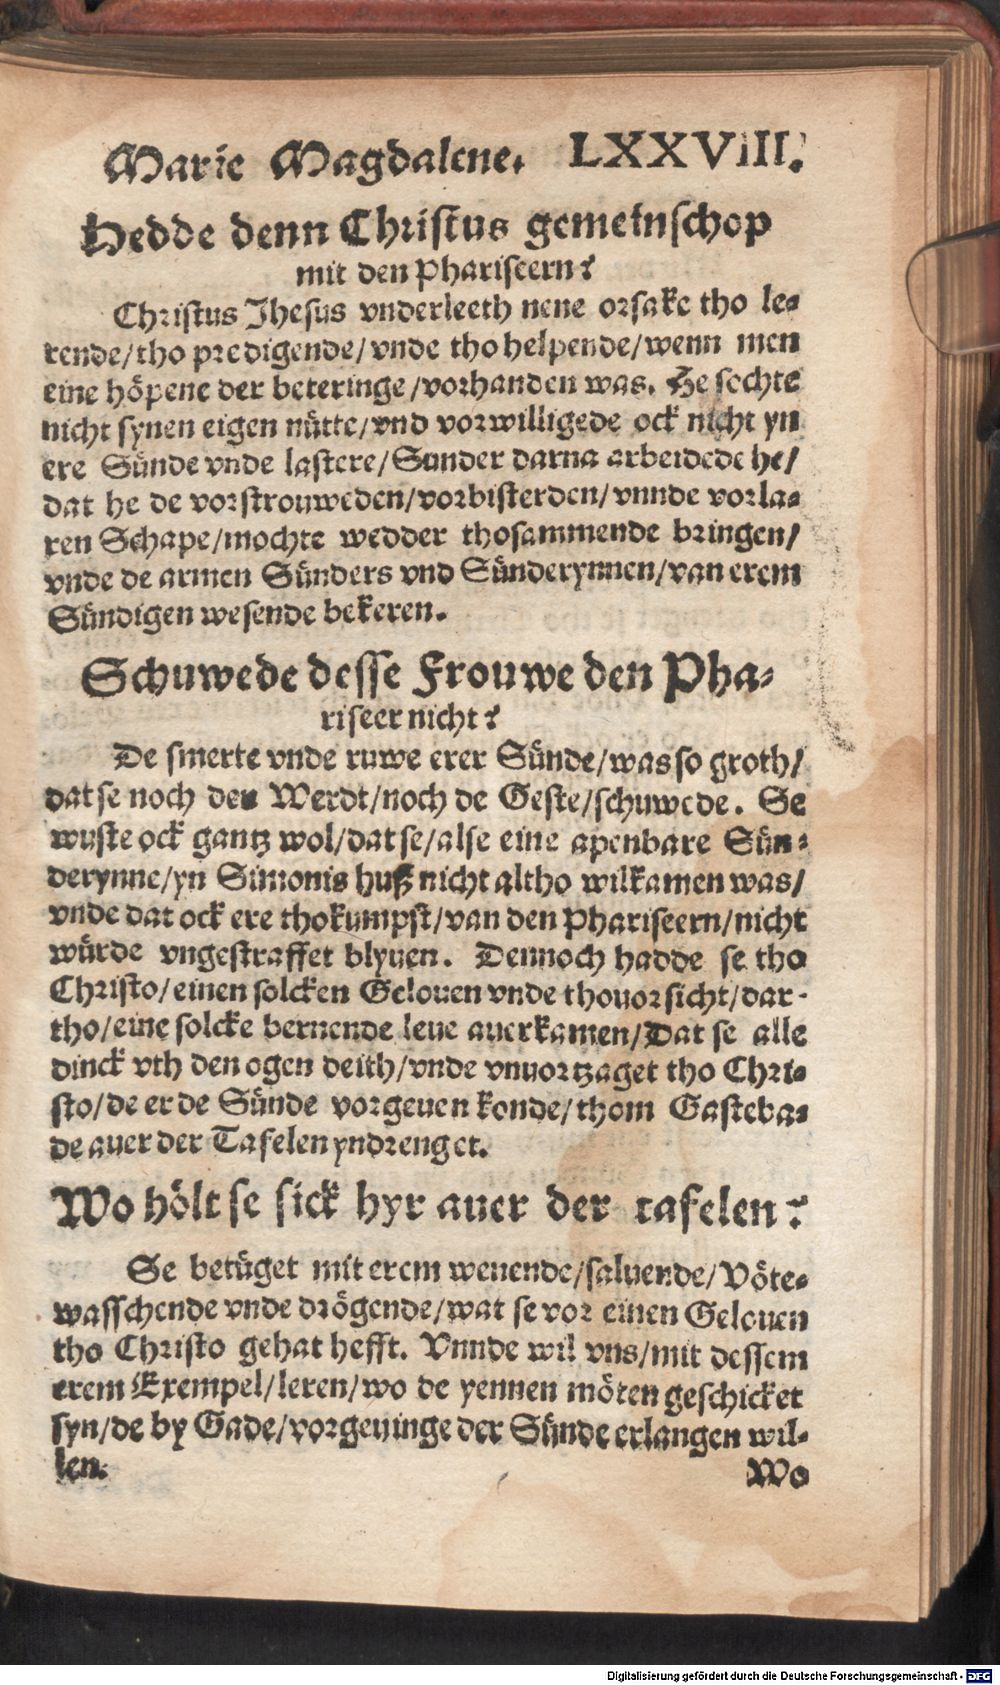 Marie Magdalene. LXXVIII.
Hedde denn Christus gemeinschop
mit den Phariseern?
Christus Jhesus vnderleeth nene orsake tho le-
rende/tho predigende/vnde tho helpende/wenn men
eine höpene der beteringe/vorhanden was. He sochte
nicht synen eigen nütte/vnd vorwilligede ock nicht yn
ere Sünde vnde lastere/Sunder darna arbeidede he/
dat he de vorstrouweden/vorbisterden/vnnde vorla-
ren Schape/mochte wedder thosammende bringen/
vnde de armen Sünders vnd Sünderynnen/van erem
Sündigen wesende bekeren.
Schuwede desse Frouwe den Pha-
riseer nicht?
De smerte vnde ruwe erer Sünde/was so groth/
dat se noch den Werdt/noch de Geste/schuwede. Se
wuste ock gantz wol/dat se/alse eine apenbare Sün-
derynne/yn Simonis huß nicht altho wilkamen was/
vnde dat ock ere thokumpst/van den Phariseern/nicht
würde vngestraffet blyuen. Dennoch hadde se tho
Christo/einen solcken Gelouen vnde thouorsicht/dar-
tho/eine solcke bernende leue auerkamen/Dat se alle
dinck vth den ogen deith/vnde vnuortzaget tho Chri-
sto/de er de Sünde vorgeuen konde/thom Gasteba-
de auer der Tafelen yndrenget.
Wo hölt se sick hyr auer der tafelen?
Se betüget mit erem wenende/saluende/Vöte-
wasschende vnde drögende/wat se vor einen Gelouen
tho Christo gehat hefft. Vnnde wil vns/mit dessem
erem Exempel/leren/wo de yennen möten geschicket
syn/de by Gade/vorgeuinge der Sünde erlangen wil-
len.
Wo
Digitalisierung gefördert durch die Deutsche Forschungsgemeinschaft - DFG